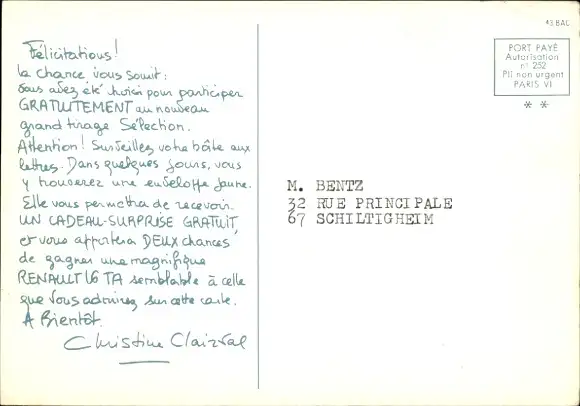 Félicitations!
la chance vous sourit:
vous avez été choisi pour participer
GRATUITEMENT au nouveau
grand tirage Sélection.
Attention! Surveillez votre boîte aux
lettres. Dans quelques jours, vous
y trouverez une enveloppe jaune.
Elle vous permettra de recevoir
UN CADEAU-SURPRISE GRATUIT
et vous apportera DEUX chances
de gagner une magnifique
RENAULT 16 TA semblable à celle
que vous admirez sur cette carte.
A Bientôt.
Christine Clairval
43 BAC
PORT PAYÉ
Autorisation
n° 252
Pli non urgent
PARIS VI
* *
M. BENTZ
32 RUE PRINCIPALE
67 SCHILTIGHEIM